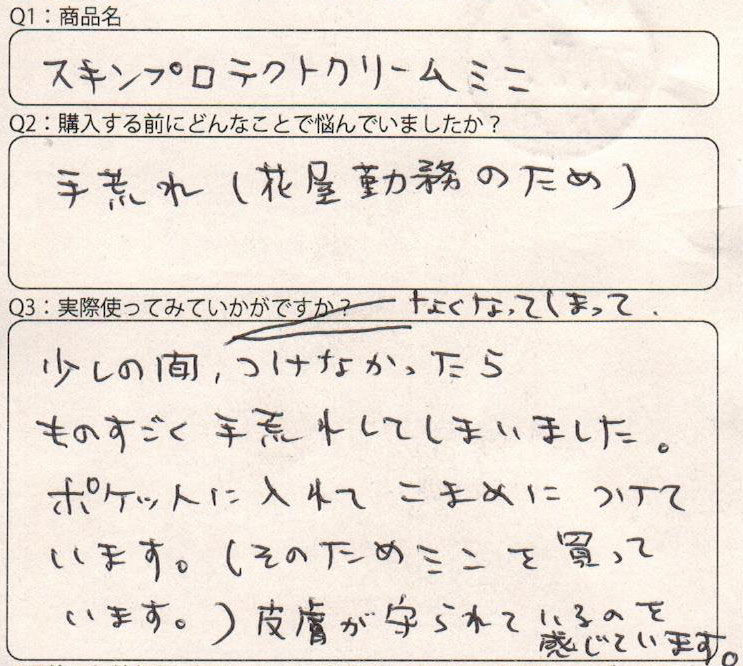 Q1：商品名
スキンプロテクトクリームミニ
Q2：購入する前にどんなことで悩んでいましたか？
手荒れ（花屋勤務のため）
Q3：実際使ってみていかがですか？
なくなってしまって、
少しの間，つけなかったら
ものすごく手荒れしてしまいました。
ポケットに入れてこまめにつけて
います。（そのためミニを買って
います。）皮膚が守られているのを
感じています。